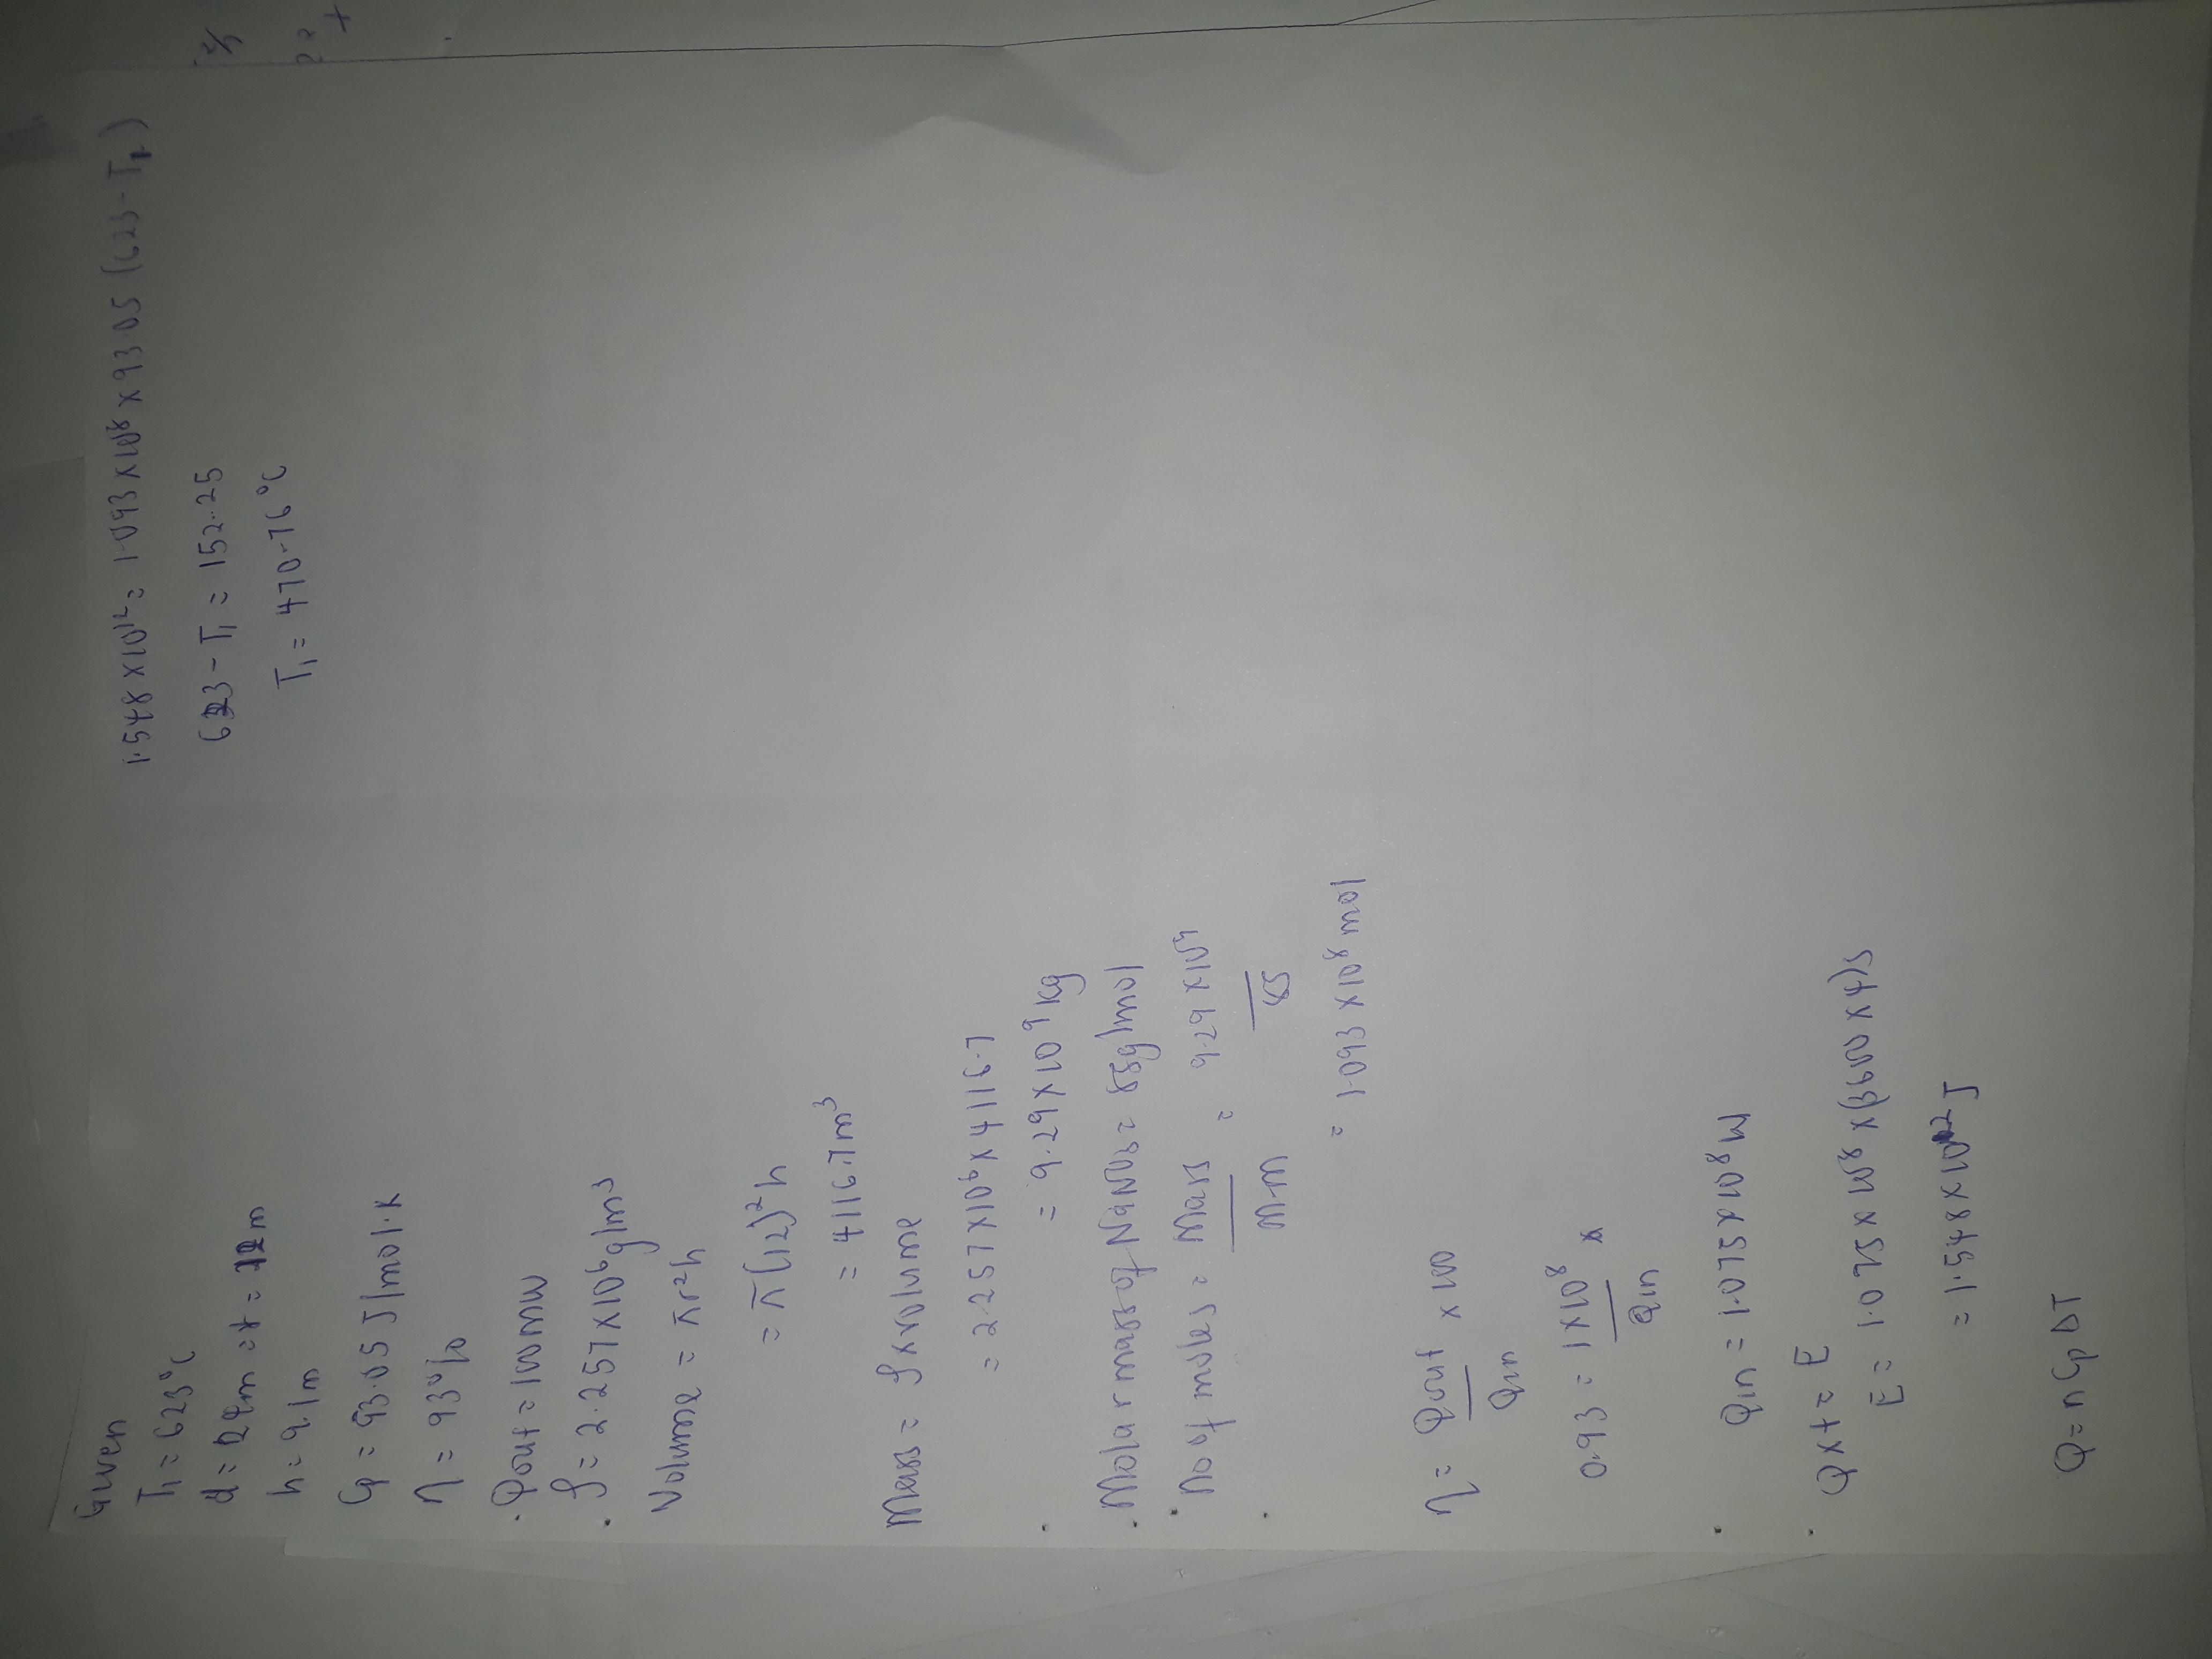 Given
T1 = 623°C
d = 24m = r = 12m
h = 9.1m
Cp = 93.05 J/mol.K
η = 93%
Pout = 100MW
ρ = 2.257×10⁶ g/m³
Volume = πr²h
= π(12)²h
= 4116.7m³
Mass = ρ×volume
= 2.257×10⁶×4116.7
= 9.29×10⁹ kg
Molar mass of NaNO3 = 85g/mol
No of moles = Mass / M.M = 9.29×10⁹ / 85
= 1.093×10⁸ mol
η = Pout / Qin × 100
0.93 = 1×10⁸ / Qin
Qin = 1.075×10⁸ W
Q×t = E
E = 1.075×10⁸×(3600×4)s
= 1.548×10¹²J
Q = nCpΔT
1.548×10¹² = 1.093×10⁸×93.05(623-T1)
623-T1 = 152.25
T1 = 470.76°C